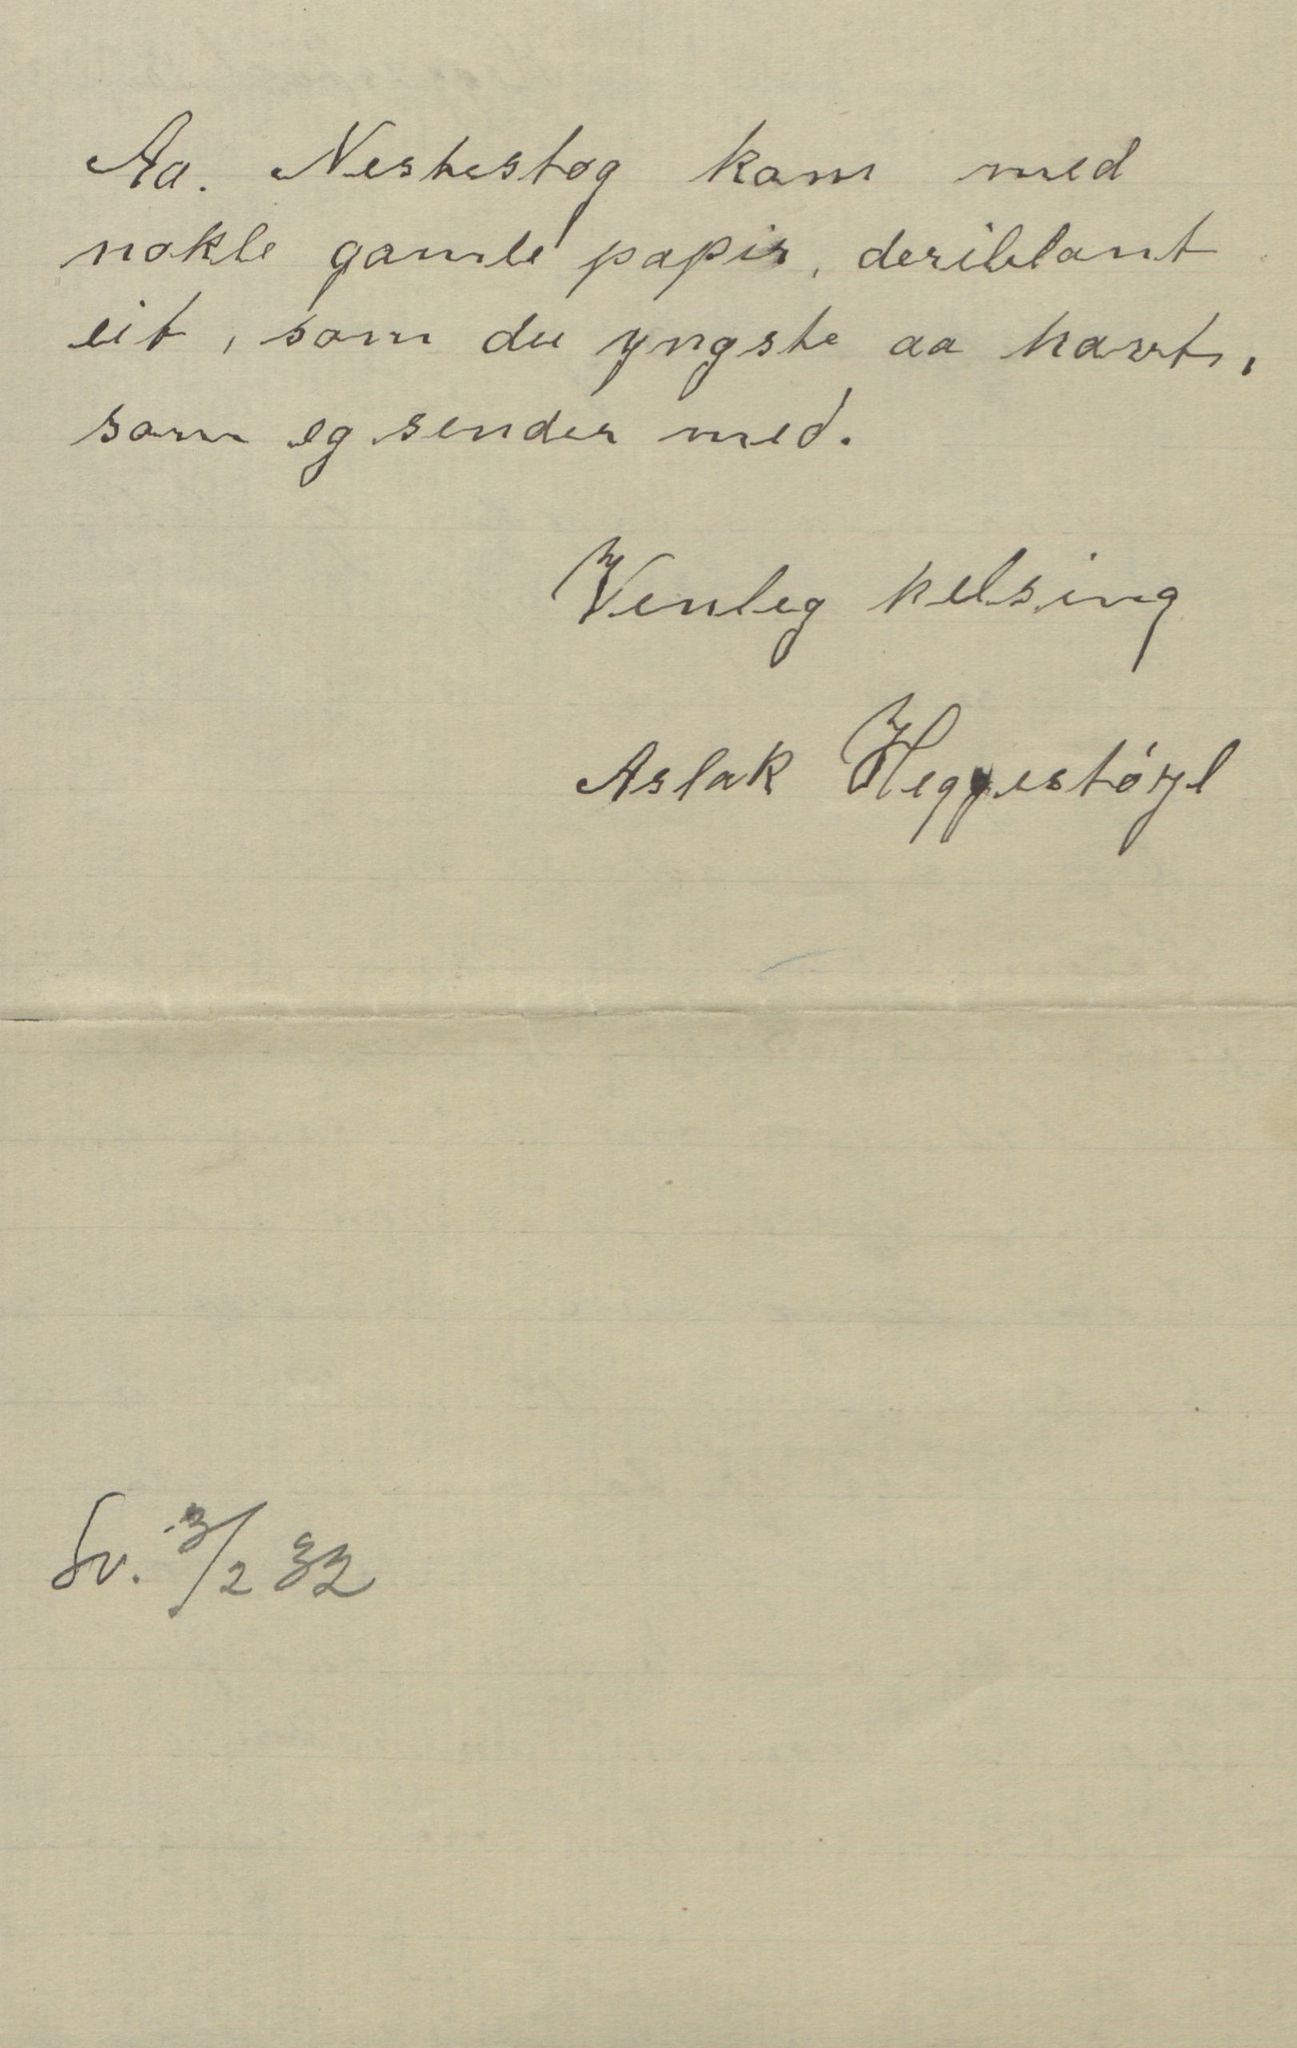 Aa. Nestestog kom med
nokle gamle papir, deriblant
eit, som du yngste aa havt,
som eg sender med.
Venleg helsing
Aslak Heggestöyl
Sv. 3/2 32